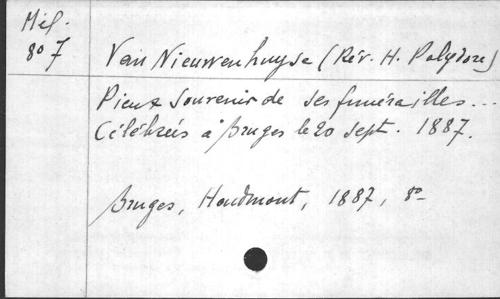 Mél.
8o 7
Van Nieuwenhuyse (Rév. H. Polydore)
Pieux Souvenir de ses funérailles...
Célébrées à Bruges le 20 sept. 1887.
Bruges, Houdmont, 1887, 8o